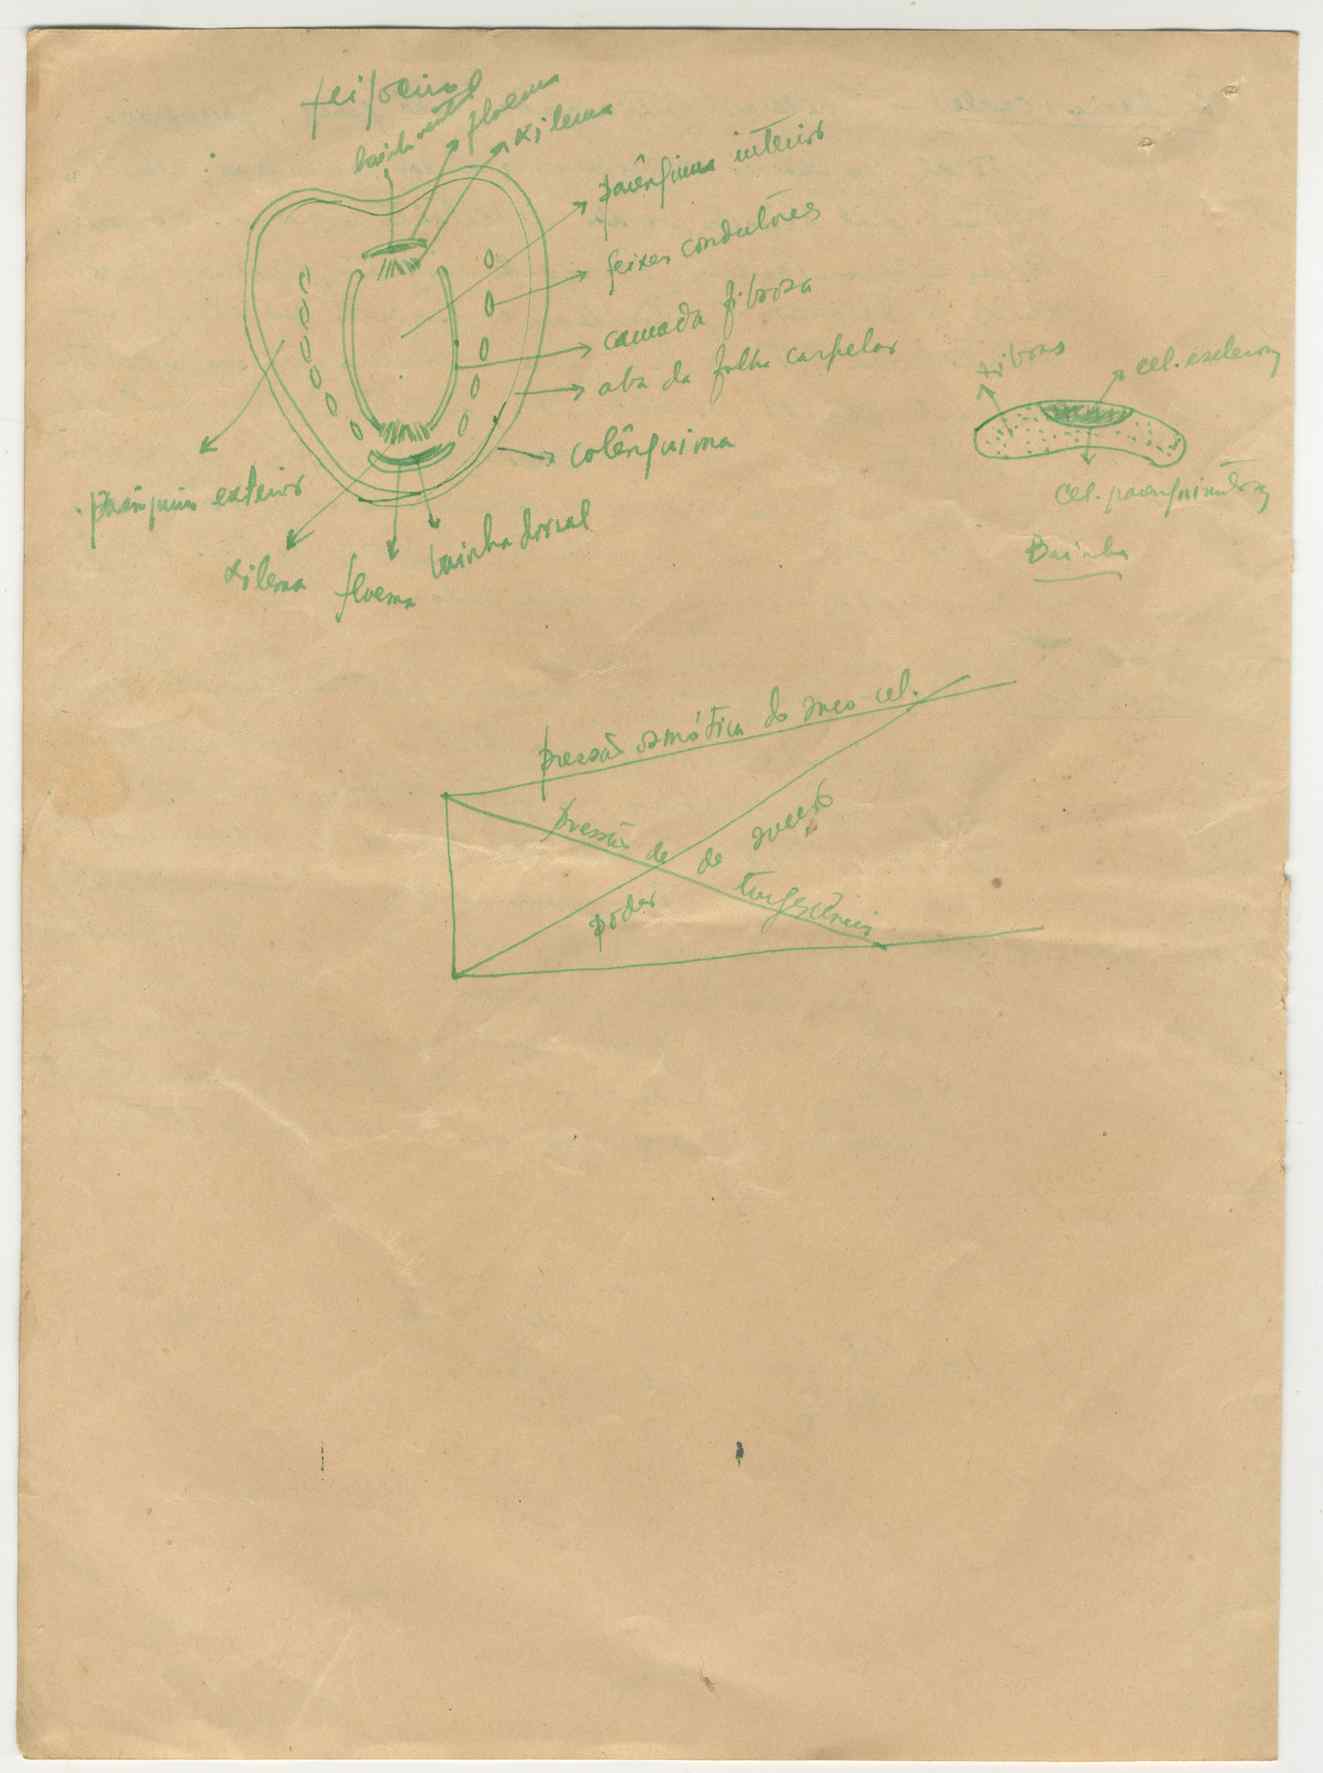 feijoeiro
bainha ventral
floema
xilema
parênquima interior
feixes condutores
camada fibrosa
aba da folha carpelar
colênquima
parênquima exterior
xilema
floema
bainha dorsal
fibras
cel. escleren
cel. parenquimatosa
Bainha
pressão osmótica do suco cel.
pressão de turgescência
poder de sucção